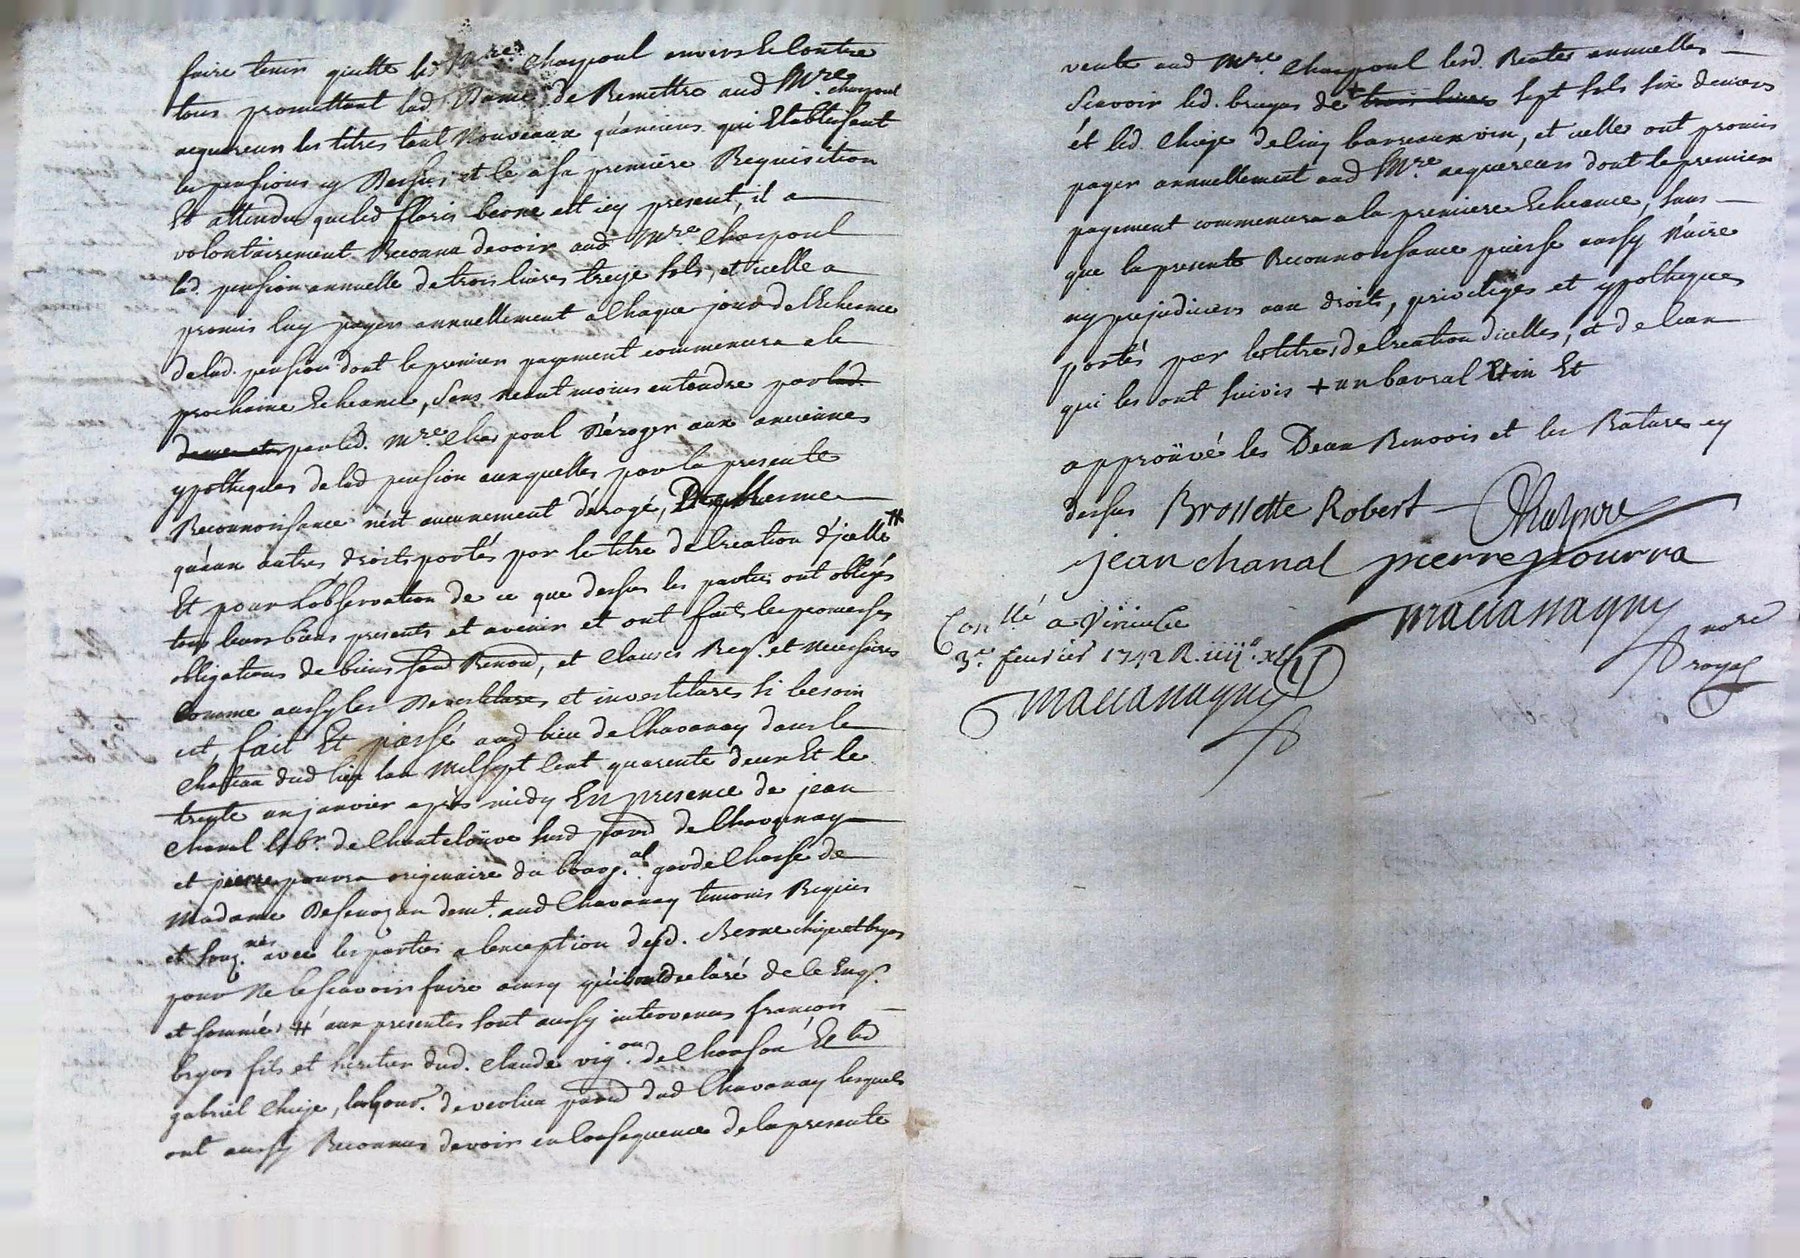 faire tenir quitte led. Mre. Charpoul envers et contre
tous promettant lad. Dame de Remettre aud Mre. charpoul
acquereur les titres tant Nouveaux qu'anciens qui Etablissent
les pensions cy Dessus et ce a sa première Requisition
Et attendu que led floris berne est icy present, il a
volontairement Reconnu devoir aud Mre Charpoul
lad. pension annuelle de trois livres treze sols, et icelle a
promis luy payer annuellement a chaque jour de l'Echeance
de lad. pension dont le premier payement commencera a la
prochaine Echeance, sans neantmoins entendre par lad.
dame et par led. Mre. Charpoul déroger aux anciennes
ypotheques de lad pension auxquelles par la presente
Reconnoissance n'est aucunement dérogé, De mesme
qu'aux autres droits portés par le titre de Creation d'jcelle #
Et pour l'observation de ce que dessus les parties ont obligés
tous leurs biens presents et avenir et ont fait les promesses
obligations de biens Renon., et clauses Req. et necessaires
comme aussy les Devestitures et investitures si besoin
est, fait Et passé aud lieu de Chavanay dans le
chateau dud lieu l'an mil sept Cent quarente deux Et le
trente un janvier après midy En presence de jean
chanal de Chantelouve sur parr de Chavanay
et pierre pourra originaire du bourg al garde chasse de
Madame demt. aud Chavanay temoins Requis
et souz.nes avec les parties a l'exception desd. Berne chieze et bryas
pour Ne le scavoir faire ainsy qu'ils ont declaré de ce Enqs.
et sommés # aux presentes sont aussy intervenus françois
bryas fils et heritier dud. Claude vigon. de Et led
gabriel chieze, labour. de verlieu parr dud Chavanay lesquels
ont aussy Reconnus devoir en Consequence de la presente
vente aud Mre. Charpoul lesd. Rentes annuelles
Scavoir led. bryas de + trois livres sept sols six deniers
ét led. chieze de cinq barraux vin, et icelles ont promis
payer annuellement aud Mre acquereur dont le premier
payement commencera a la premiere Echeance, sans
que la presente Reconnoissance puisse aussy Nuire
ny prejudicier aux droits, privileges et ypotheques
portés par les titres de Creation d'icelles, et de Ceux
qui les ont suivis + un barral vin Et
approuvé les Deux Renvois et les Ratures cy
dessus Brossette Robert
jean chanal pierre pourra
Conllé a Virieu Ce
3e. fevrier 1742 R.